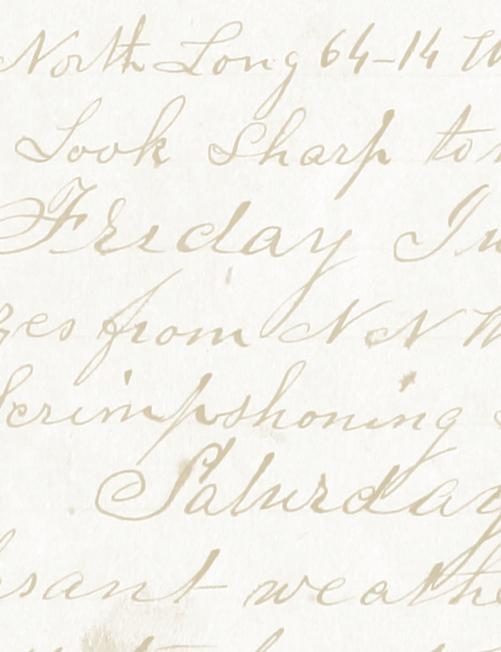 North Long 64-14 W
Look Sharp to
Friday Ju
ges from N N W
Scrimpshoning
Saturday
sant weathe